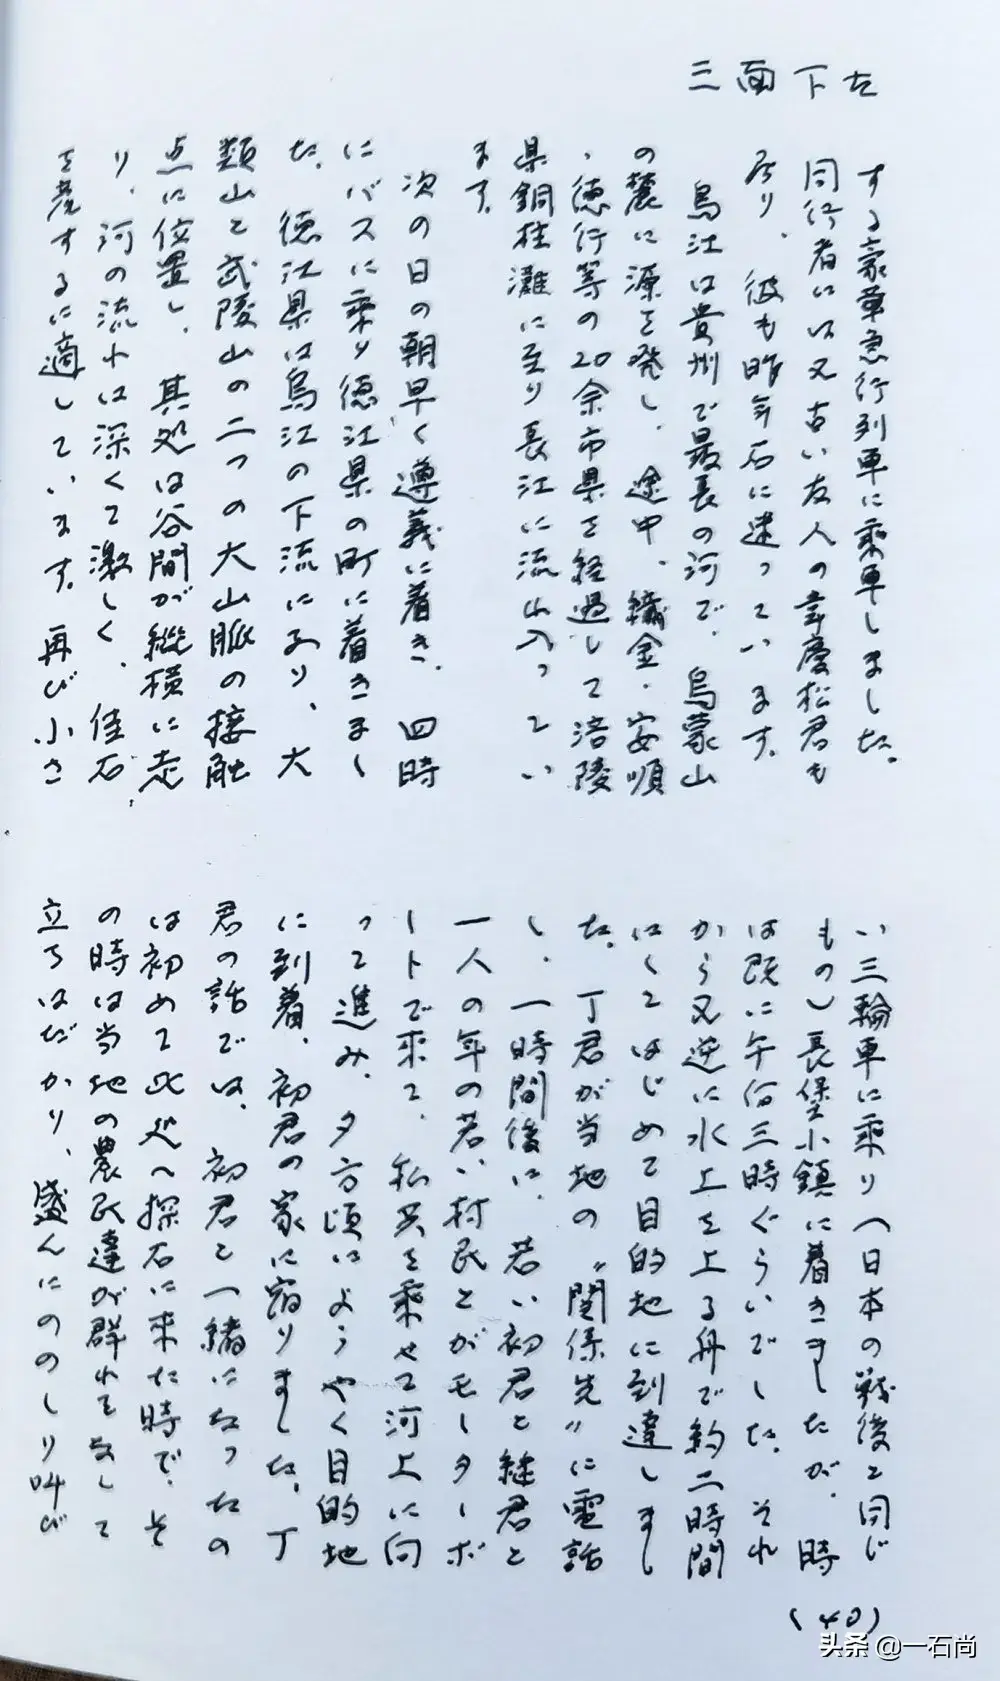 三面下左
する豪華急行列車に乗車しました。
同行者には又古い友人の韋慶松君も
居り、彼も昨年石に迷っています。
烏江は貴州で最長の河で、烏蒙山
の麓に源を発し、途中、織金・安順
・徳行等の20余市県を経過して涪陵
県銅柱灘に至り長江に流れ入ってい
ます。
次の日の朝早く遵義に着き、四時
にバスに乗り徳江県の町に着きまし
た。徳江県は烏江の下流にあり、大
類山と武陵山の二つの大山脈の接触
点に位置し、其処は谷間が縦横に走
り、河の流れは深くて激しく、佳石
を産するに適しています。再び小さ
い三輪車に乗り(日本の戦後と同じ
もの)長堡小鎮に着きましたが、時
は既に午后三時ぐらいでした。それ
から又逆に水上を上る舟で約二時間
にしてはじめて目的地に到達しまし
た。丁君が当地の〝関係先〟に電話
し、一時間後に、若い初君と継君と
一人の年の若い村民とがモーターボ
ートで来て、私共を乗せて河上に向
って進み、夕方頃にようやく目的地
に到着、初君の家に宿りました。丁
君の話では、初君と一緒になったの
は初めて此処へ探石に来た時で、そ
の時は当地の農民達が群れをなして
立ちはだかり、盛んにののしり叫び
(40)
头条 @一石尚